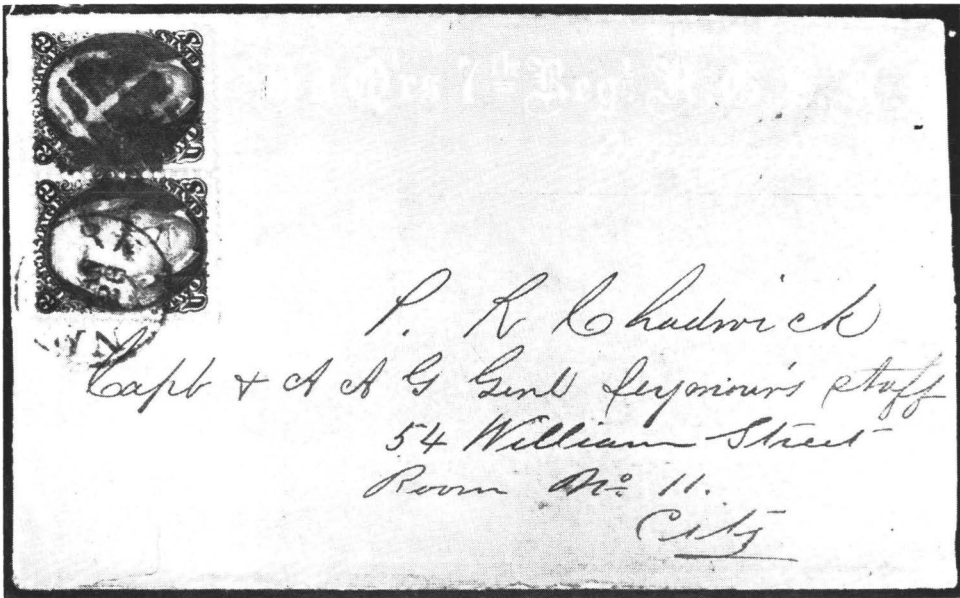 Qrs 7th Regt N. G.
P. R. Chadwick
Capt & A A G Genl Seymour's staff
54 William Street
Room No 11.
City